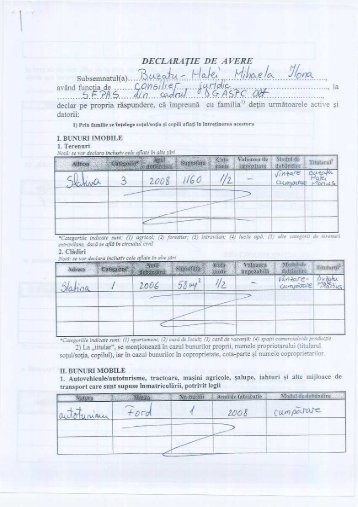 DECLARAŢIE DE AVERE
Subsemnatul(a) Buzatu - Matei Mihaela Ilona
având funcţia de consilier juridic la
din cadrul DGASPC Olt
declar pe propria răspundere, că împreună cu familia¹⁾ deţin următoarele active şi
datorii:
1) Prin familie se înţelege soţul/soţia şi copiii aflaţi în întreţinerea acestora
I. BUNURI IMOBILE
1. Terenuri
Notă: se vor declara inclusiv cele aflate în alte ţări
Adresa Categoria* Suprafaţa Cota-parte Valoarea de Modul de dobândire Titularul²
Slatina 3 2008 1160 1/2 - Vânzare cumpărare Buzatu Matei
*Categoriile indicate sunt: (1) agricol; (2) forestier; (3) intravilan; (4) luciu apă; (5) alte categorii de terenuri
extravilane, dacă se află în circuitul civil
2. Clădiri
Notă: se vor declara inclusiv cele aflate în alte ţări
Adresa Categoria* Suprafaţa Cota-parte Valoarea impozabilă Modul de dobândire Titularul²
Slatina 1 2006 58 m² 1/2 - Vânzare-cumpărare Buzatu Matei
*Categoriile indicate sunt: (1) apartament; (2) casă de locuit; (3) casă de vacanţă; (4) spaţii comerciale/de producţie
2) La „titular", se menţionează în cazul bunurilor proprii, numele proprietarului (titularul
soţul/soţia, copilul), iar în cazul bunurilor în coproprietate, cota-parte şi numele coproprietarilor.
II. BUNURI MOBILE
1. Autovehicule/autoturisme, tractoare, maşini agricole, şalupe, iahturi şi alte mijloace de
transport care sunt supuse înmatriculării, potrivit legii
Natura Marca Nr. bucăţi Anul de fabricaţie Modul de dobândire
autoturism Ford 1 2008 cumpărare